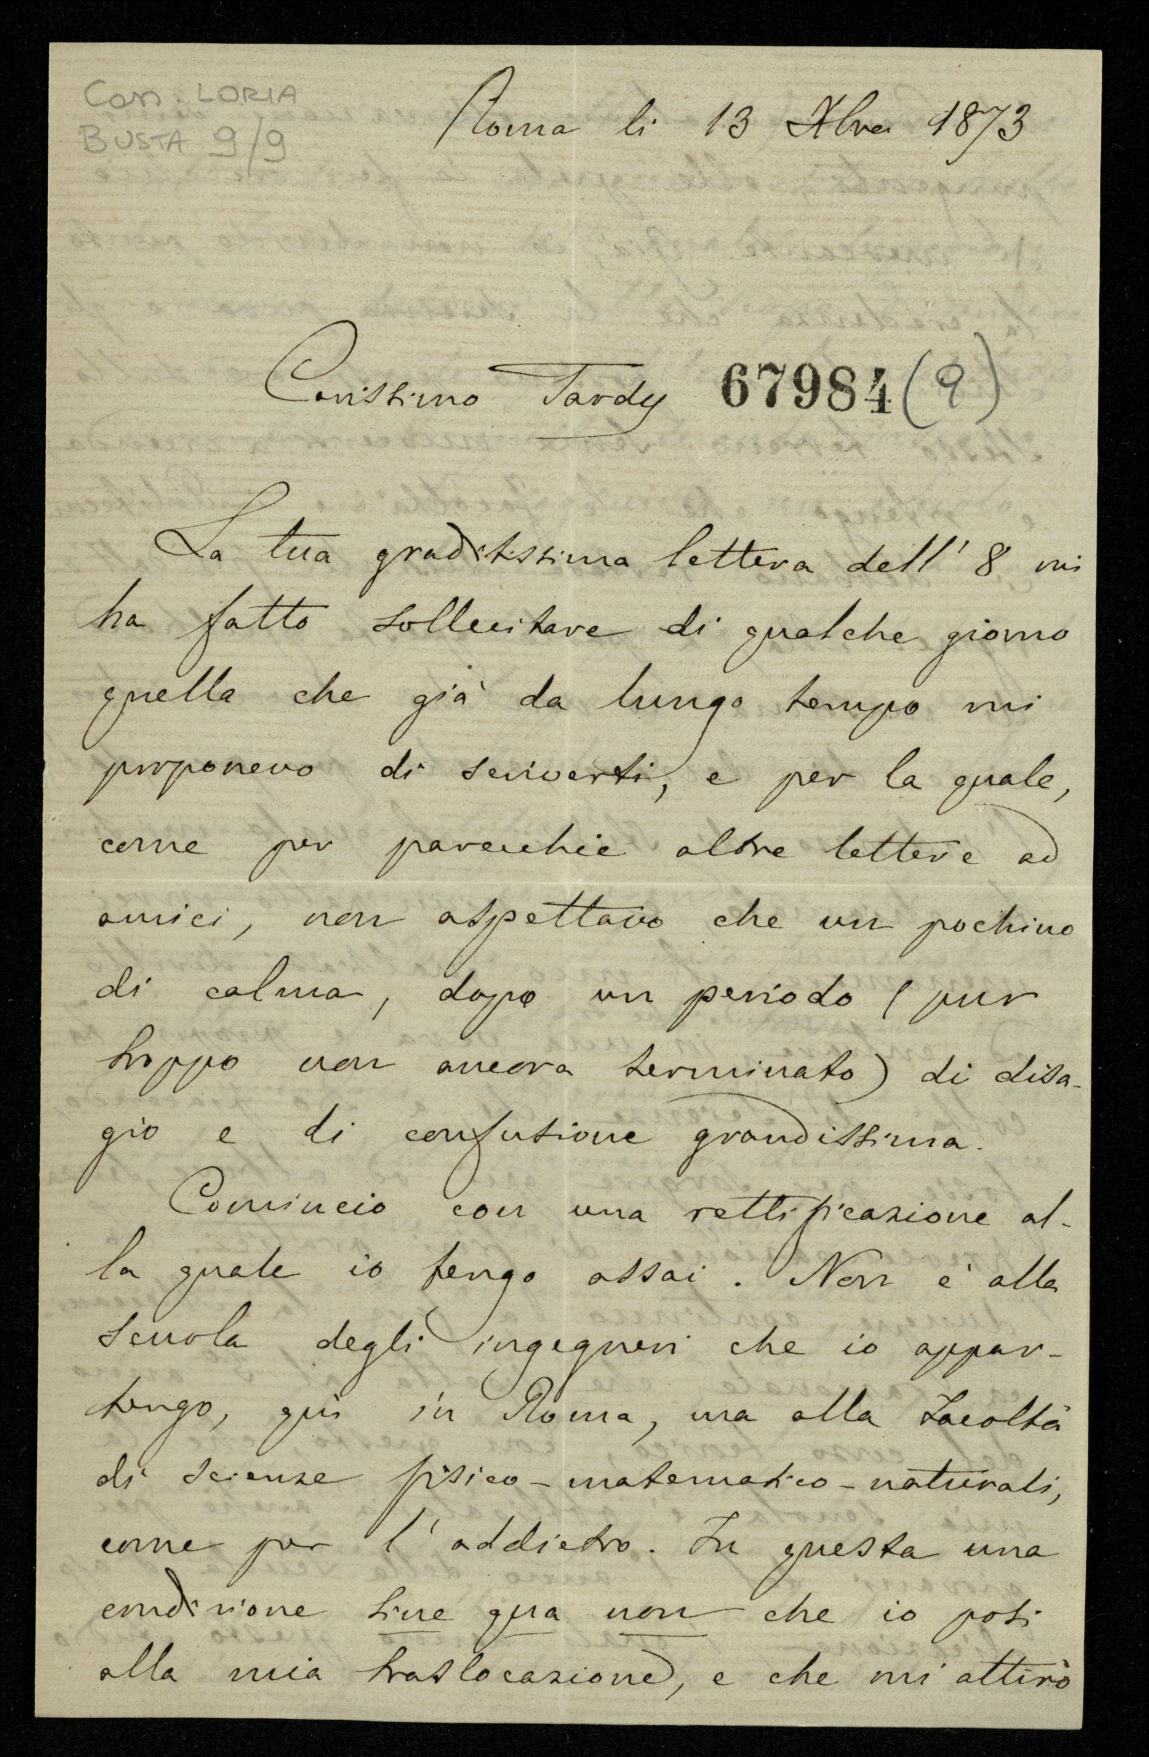 Con. LORIA
BUSTA 9/9
Roma li 13 Xbre 1873
Carissimo Tardy 67984 (9)
La tua graditissima lettera dell' 8 mi
ha fatto sollecitare di qualche giorno
quella che già da lungo tempo mi
proponevo di scriverti, e per la quale,
come per parecchie altre lettere ad
amici, non aspettavo che un pochino
di calma, dopo un periodo (pur
troppo non ancora terminato) di disa-
gio e di confusione grandissima.
Comincio con una rettificazione al-
la quale io tengo assai. Non è alla
scuola degli ingegneri che io appar-
tengo, qui in Roma, ma alla Facoltà
di scienze fisico-matematico-naturali,
come per l'addietro. Fu questa una
condizione sine qua non che io posi
alla mia traslocazione, e che mi attirò